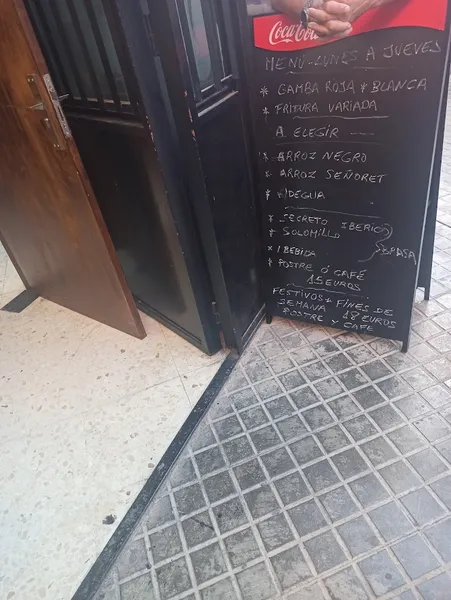 Coca-Cola
MENÚ-LUNES A JUEVES
* GAMBA ROJA * BLANCA
* FRITURA VARIADA
A ELEGIR
* ARROZ NEGRO
* ARROZ SEÑORET
* FIDEGUA
* SECRETO IBERICO
* SOLOMILLO
BRASA
* 1 BEBIDA
* POSTRE Ó CAFÉ
15 EUROS
FESTIVOS + FINES DE
SEMANA 18 EUROS
POSTRE Y CAFE